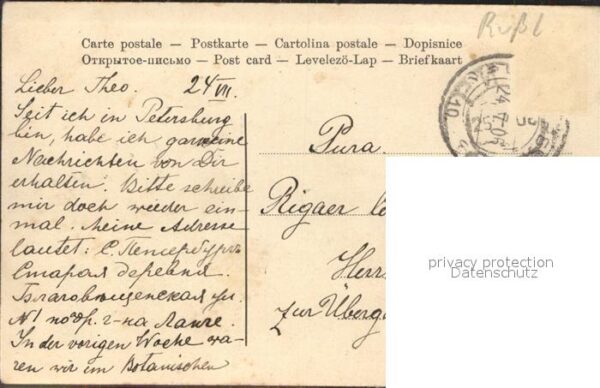 Rußl
Carte postale — Postkarte — Cartolina postale — Dopisnice
Открытое-письмо — Post card — Levelező-Lap — Briefkaart
Lieber Theo. 24 VII.
Seit ich in Petersburg
bin, habe ich gar keine
Nachrichten von Dir
erhalten. Bitte schreibe
mir doch wieder ein-
mal. Meine Adresse
lautet: С. Петербургъ
Старая деревня.
Благовѣщенская ул.
№1 по др. г-на Ланге.
In der vorigen Woche wa-
ren wir im Botanischen
Pura.
Rigaer
Herr
zur Überg
privacy protection
Datenschutz